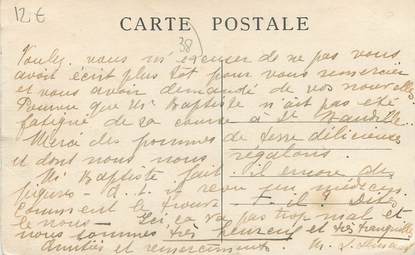 12€
CARTE POSTALE
38)
Voulez vous m'excuser de ne pas vous
avoir écrit plus tôt pour vous remercier
et vous avoir demandé de vos nouvelles
Pourvu que Mr Baptiste n'ait pas été
fatigué de la course à St
Merci des pommes de terre délicieuses
et dont nous nous régalons.
Mr Baptiste fait-il encore des
piqûres - a-t-il revu un médecin
Comment le trouve-t-il? Dites
le nous - Ici, ça va pas trop mal et
nous sommes très heureux et très tranquilles
Amitiés et remerciements. M.